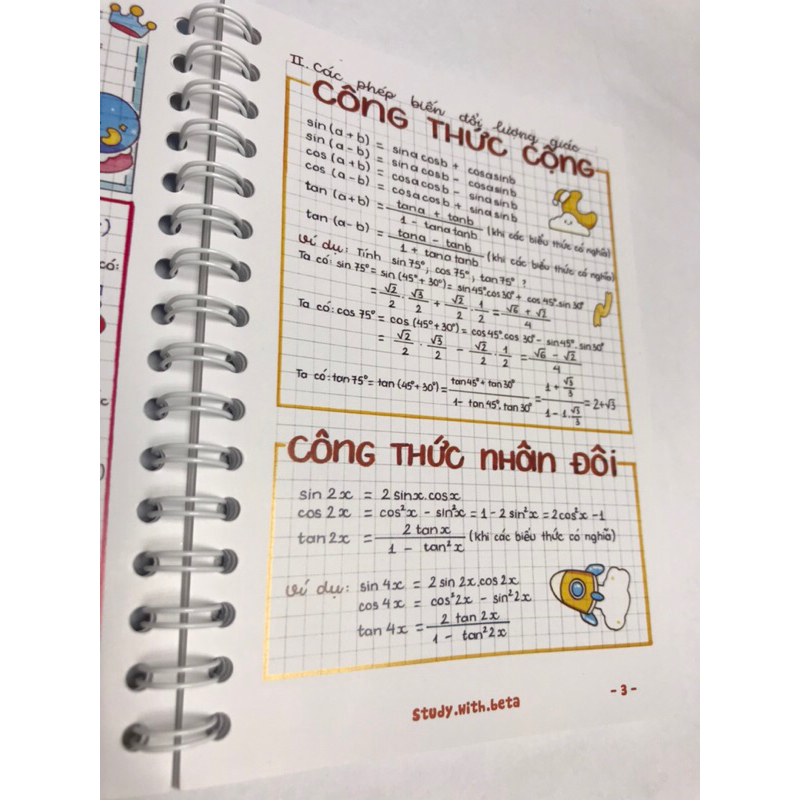 II. Các phép biến đổi lượng giác
CÔNG THỨC CỘNG
sin (a + b) = sina cosb + cosa sinb
sin (a - b) = sina cosb - cosa sinb
cos (a + b) = cosa cosb - sina sinb
cos (a - b) = cosa cosb + sina sinb
tan (a + b) = (tana + tanb) / (1 - tana tanb) (khi các biểu thức có nghĩa)
tan (a - b) = (tana - tanb) / (1 + tana tanb) (khi các biểu thức có nghĩa)
Ví dụ: Tính sin 75°; cos 75°; tan 75° ?
Ta có: sin 75° = sin (45° + 30°) = sin 45°.cos 30° + cos 45°.sin 30°
= √2/2 . √3/2 + √2/2 . 1/2 = (√6 + √2)/4
Ta có: cos 75° = cos (45° + 30°) = cos 45°.cos 30° - sin 45°.sin 30°
= √2/2 . √3/2 - √2/2 . 1/2 = (√6 - √2)/4
Ta có: tan 75° = tan (45° + 30°) = (tan 45° + tan 30°) / (1 - tan 45°.tan 30°) = (1 + √3/3) / (1 - 1.√3/3) = 2+√3
CÔNG THỨC NHÂN ĐÔI
sin 2x = 2 sinx.cosx
cos 2x = cos²x - sin²x = 1 - 2 sin²x = 2cos²x - 1
tan 2x = 2 tanx / (1 - tan²x) (khi các biểu thức có nghĩa)
Ví dụ: sin 4x = 2 sin 2x.cos 2x
cos 4x = cos²2x - sin²2x
tan 4x = 2 tan 2x / (1 - tan²2x)
study.with.beta
- 3 -
có: